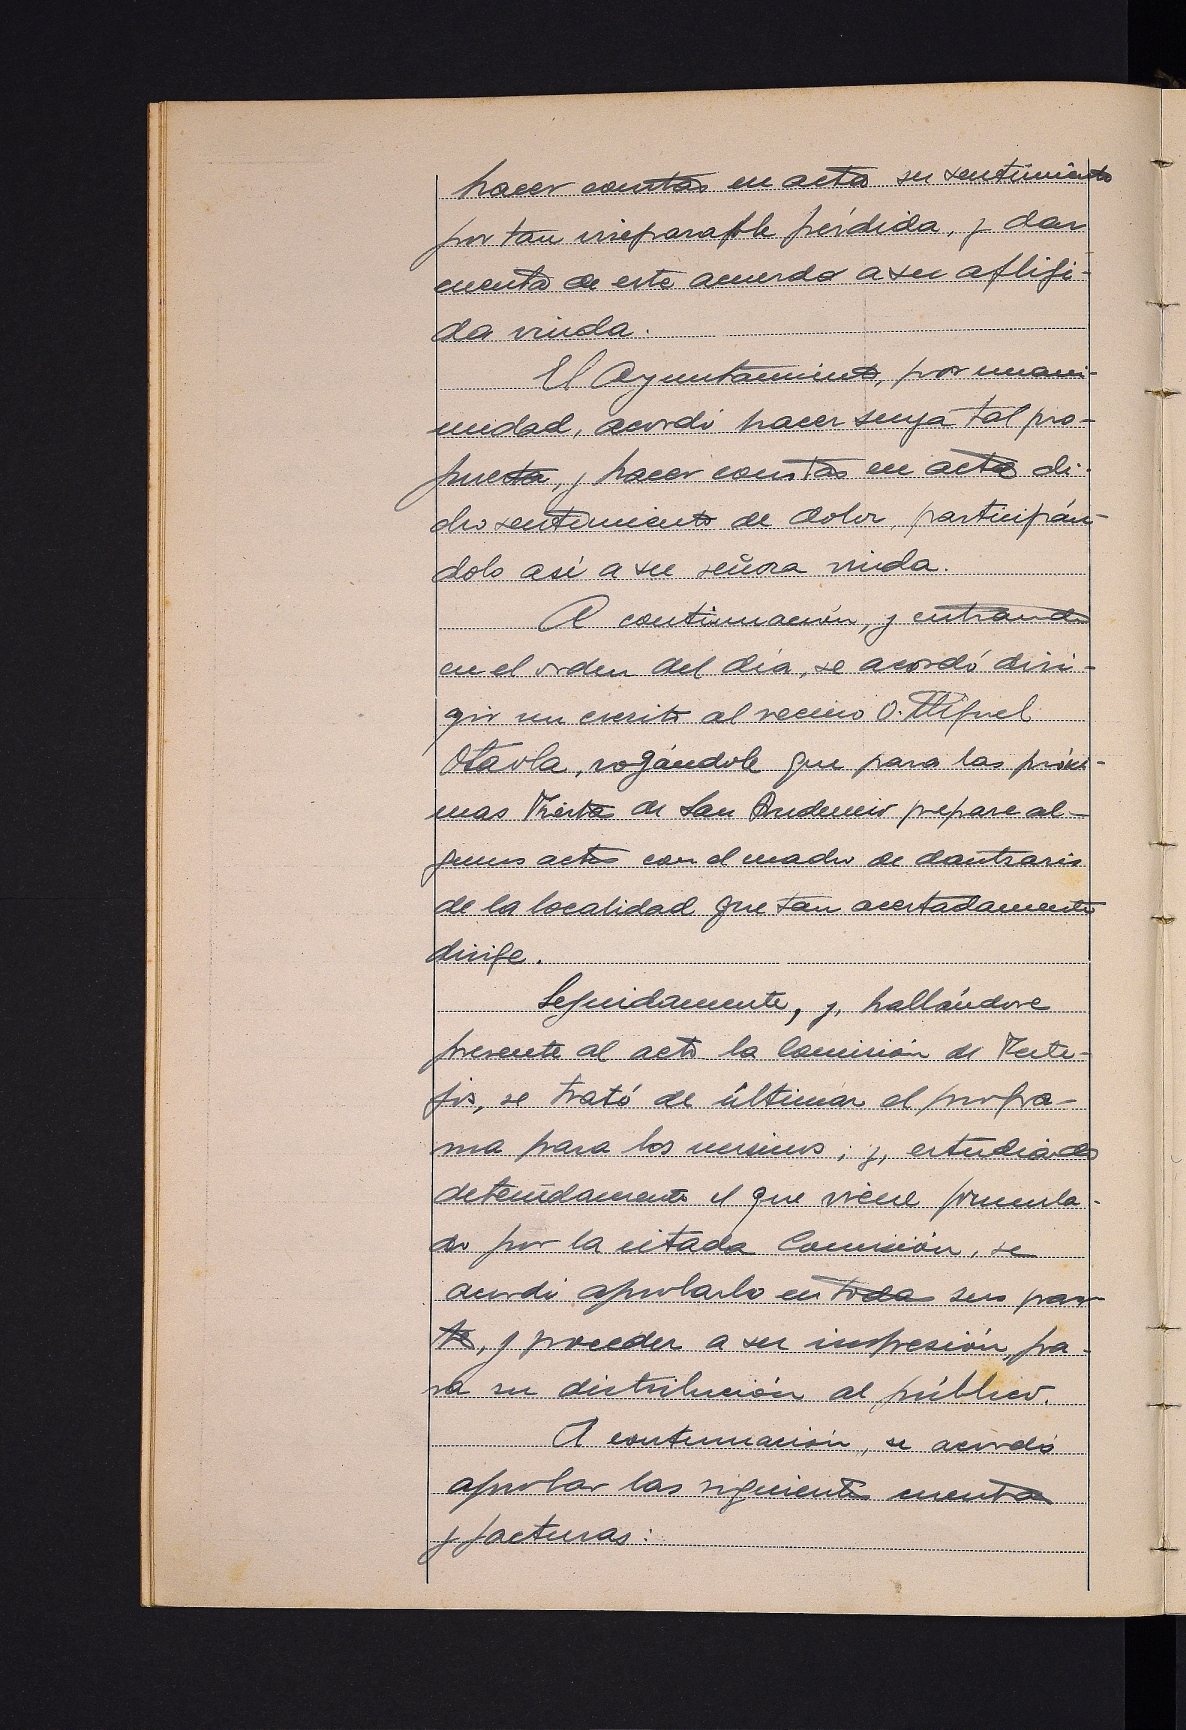 hacer constar en acta su sentimiento
por tan irreparable pérdida, y dar
cuenta de este acuerdo a su afligi-
da viuda.
El Ayuntamiento, por unani-
midad, acordó hacer suya tal pro-
puesta, y hacer constar en acta di-
cho sentimiento de dolor, participán-
dolo así a su señora viuda.
A continuación, y entrando
en el orden del día, se acordó diri-
gir un escrito al vecino D. Miguel
Otaola, rogándole que para las próxi-
mas Fiestas de San Prudencio prepare al-
gunos actos con el cuadro de dantzaris
de la localidad que tan acertadamente
dirige.
Seguidamente, y, hallándose
presente al acto la Comisión de Feste-
jos, se trató de últimar el progra-
ma para los mismos; y, estudiado
detenidamente el que viene formula-
do por la citada Comisión, se
acordó aprobarlo en todas sus par-
tes, y proceder a su impresión, pa-
ra su distribución al público.
A continuación, se acordó
aprobar las siguientes cuentas
y facturas: